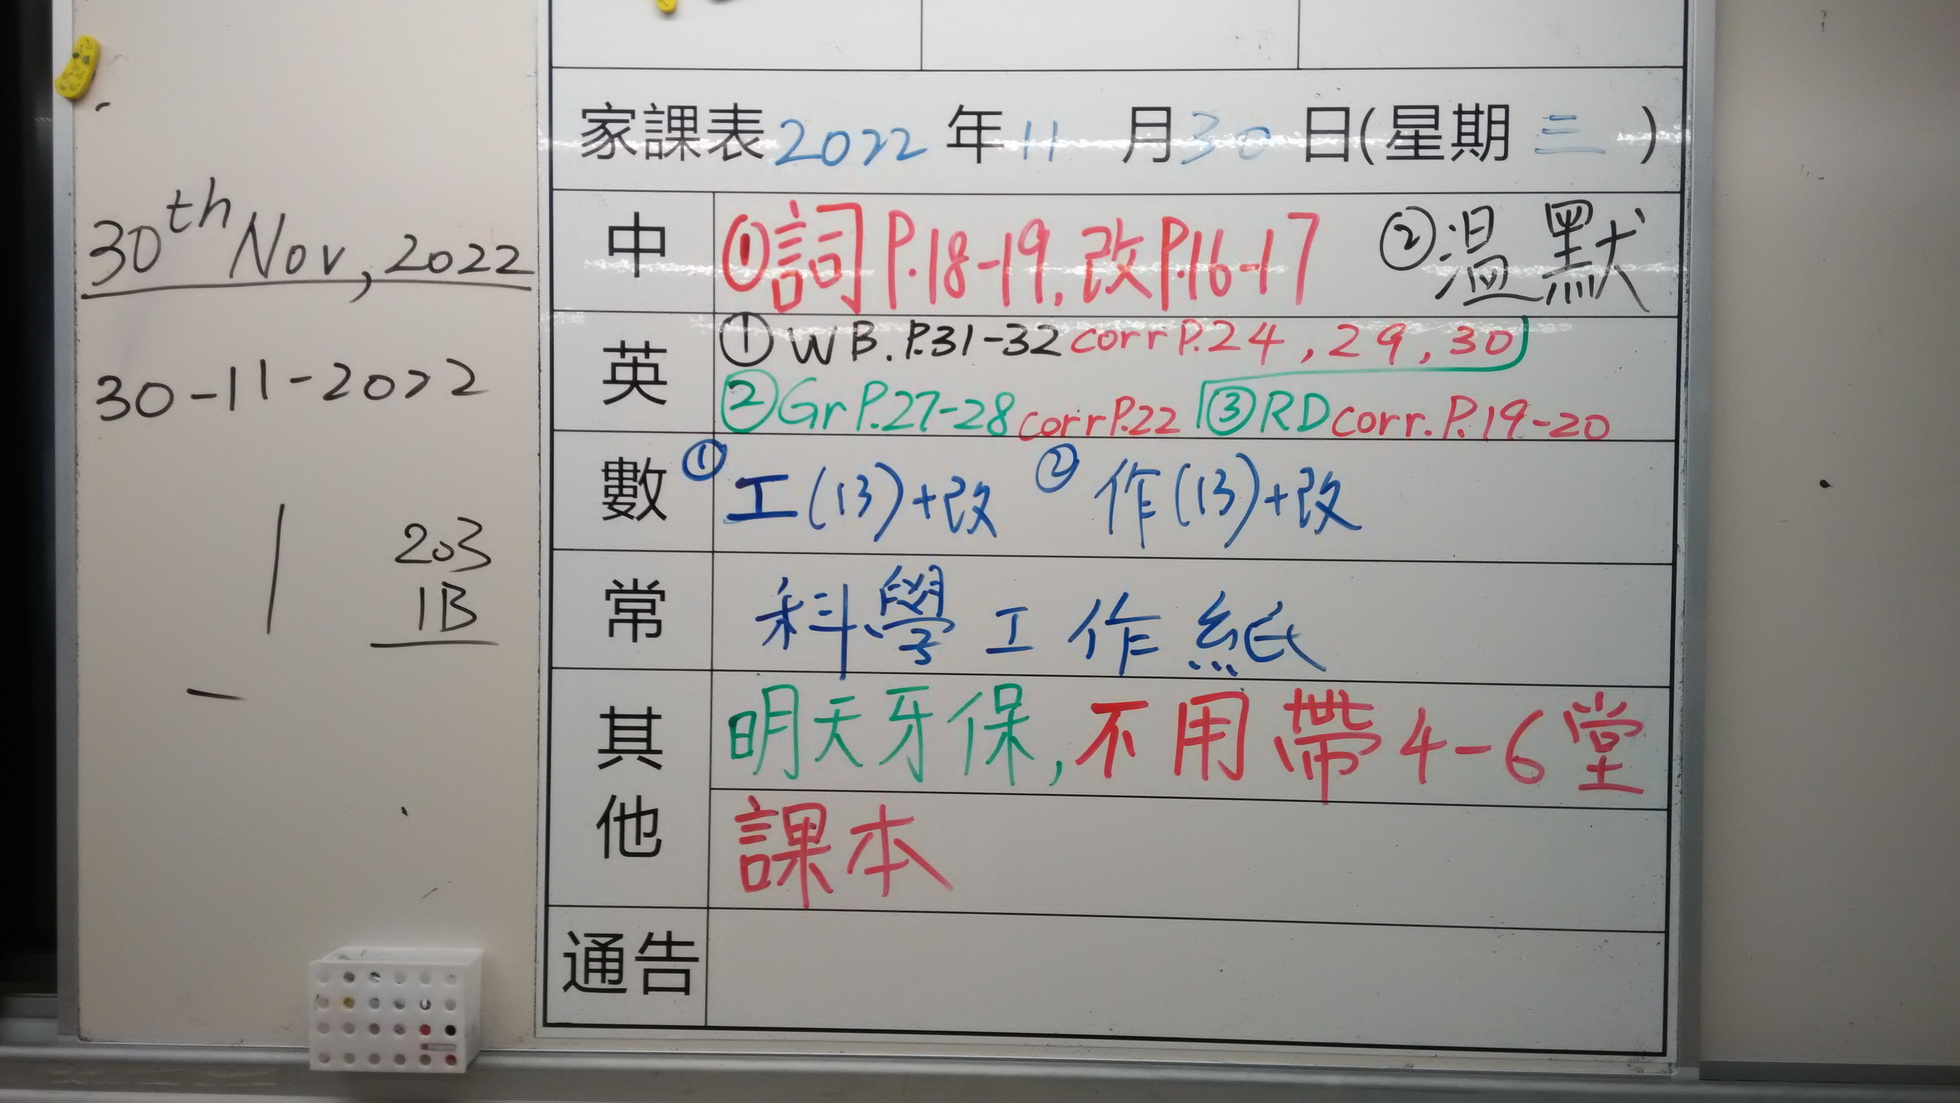 30th Nov, 2022
30-11-2022
203
1B
家課表2022年11月30日(星期三)
中 ①詞P.18-19,改P.16-17 ②温默
英 ①WB.P.31-32 corr P.24,29,30
②Gr P.27-28 corr P.22 ③RD corr.P.19-20
數 ①工(13)+改 ②作(13)+改
常 科學工作紙
其他 明天牙保,不用帶4-6堂
課本
通告